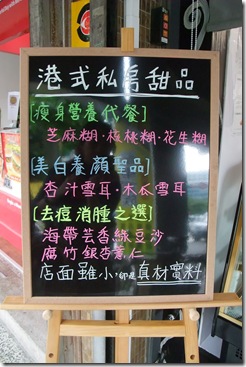 港式私房甜品
[瘦身營養代餐]
芝麻糊·核桃糊·花生糊
[美白養顏聖品]
杏汁雪耳·木瓜雪耳
[去痘消腫之選]
海帶芸香綠豆沙
腐竹銀杏薏仁
店面雖小,卻是真材實料